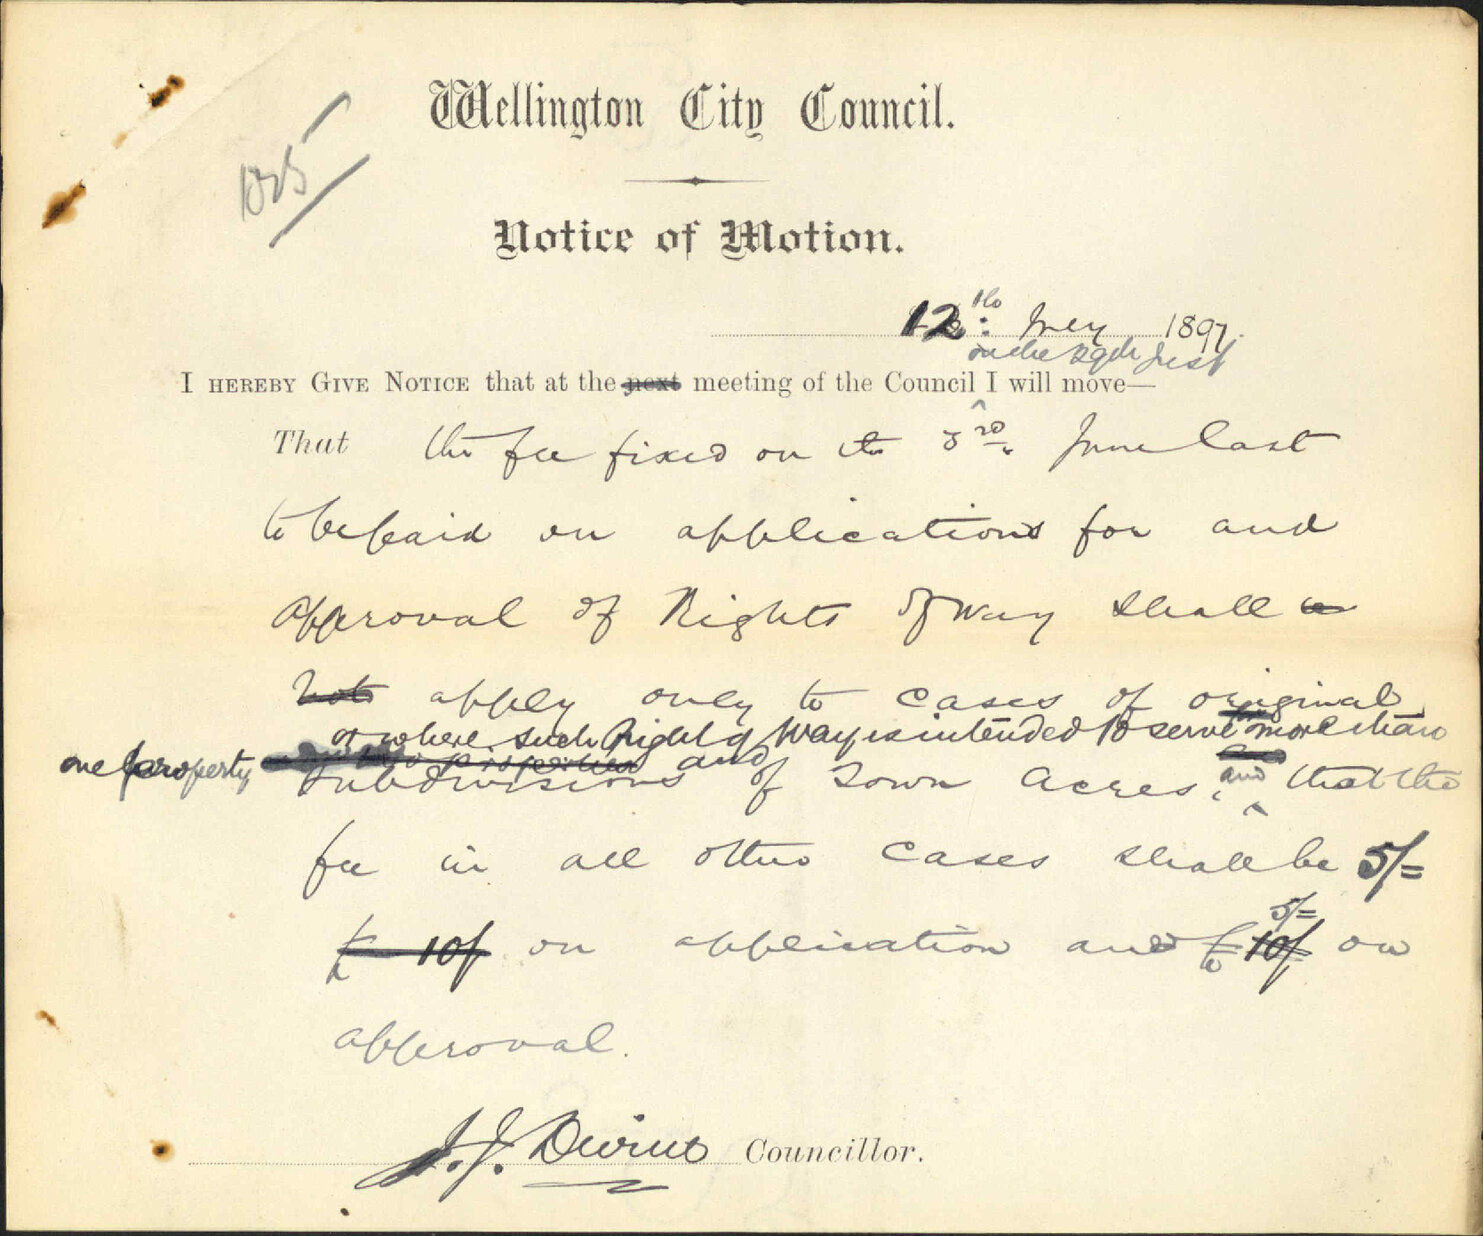 1025
Wellington City Council.
Notice of Motion.
12th July 1897.
on the 29th Inst
I HEREBY GIVE NOTICE that at the next meeting of the Council I will move—
That the fee fixed on the 3rd June last
to be paid on applications for and
approval of Rights of way shall
not apply only to cases of original
or where such Right of Way is intended to serve more than
one property and
subdivisions of Town Acres and that the
fee in all other cases shall be 5/=
10/ on application and 5/=
10/ on
approval.
J. J. Devine Councillor.